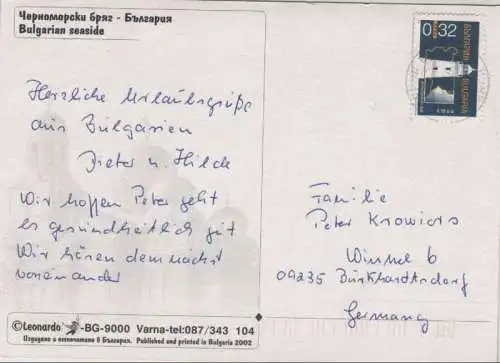 Черноморски бряг - България
Bulgarian seaside
Herzliche Urlaubsgrüße
aus Bulgarien
Dieter u. Hilde
Wir hoffen Peter geht
es gesundheitlich gut
Wir hören demnächst
voneinander
0.32
БЪЛГАРИЯ BULGARIA
Familie
Peter Krowiors
Winnel 6
09235 Burkhardtsdorf
Germany
©Leonardo -BG-9000 Varna-tel:087/343 104
Издадено и отпечатано в България. Published and printed in Bulgaria 2002